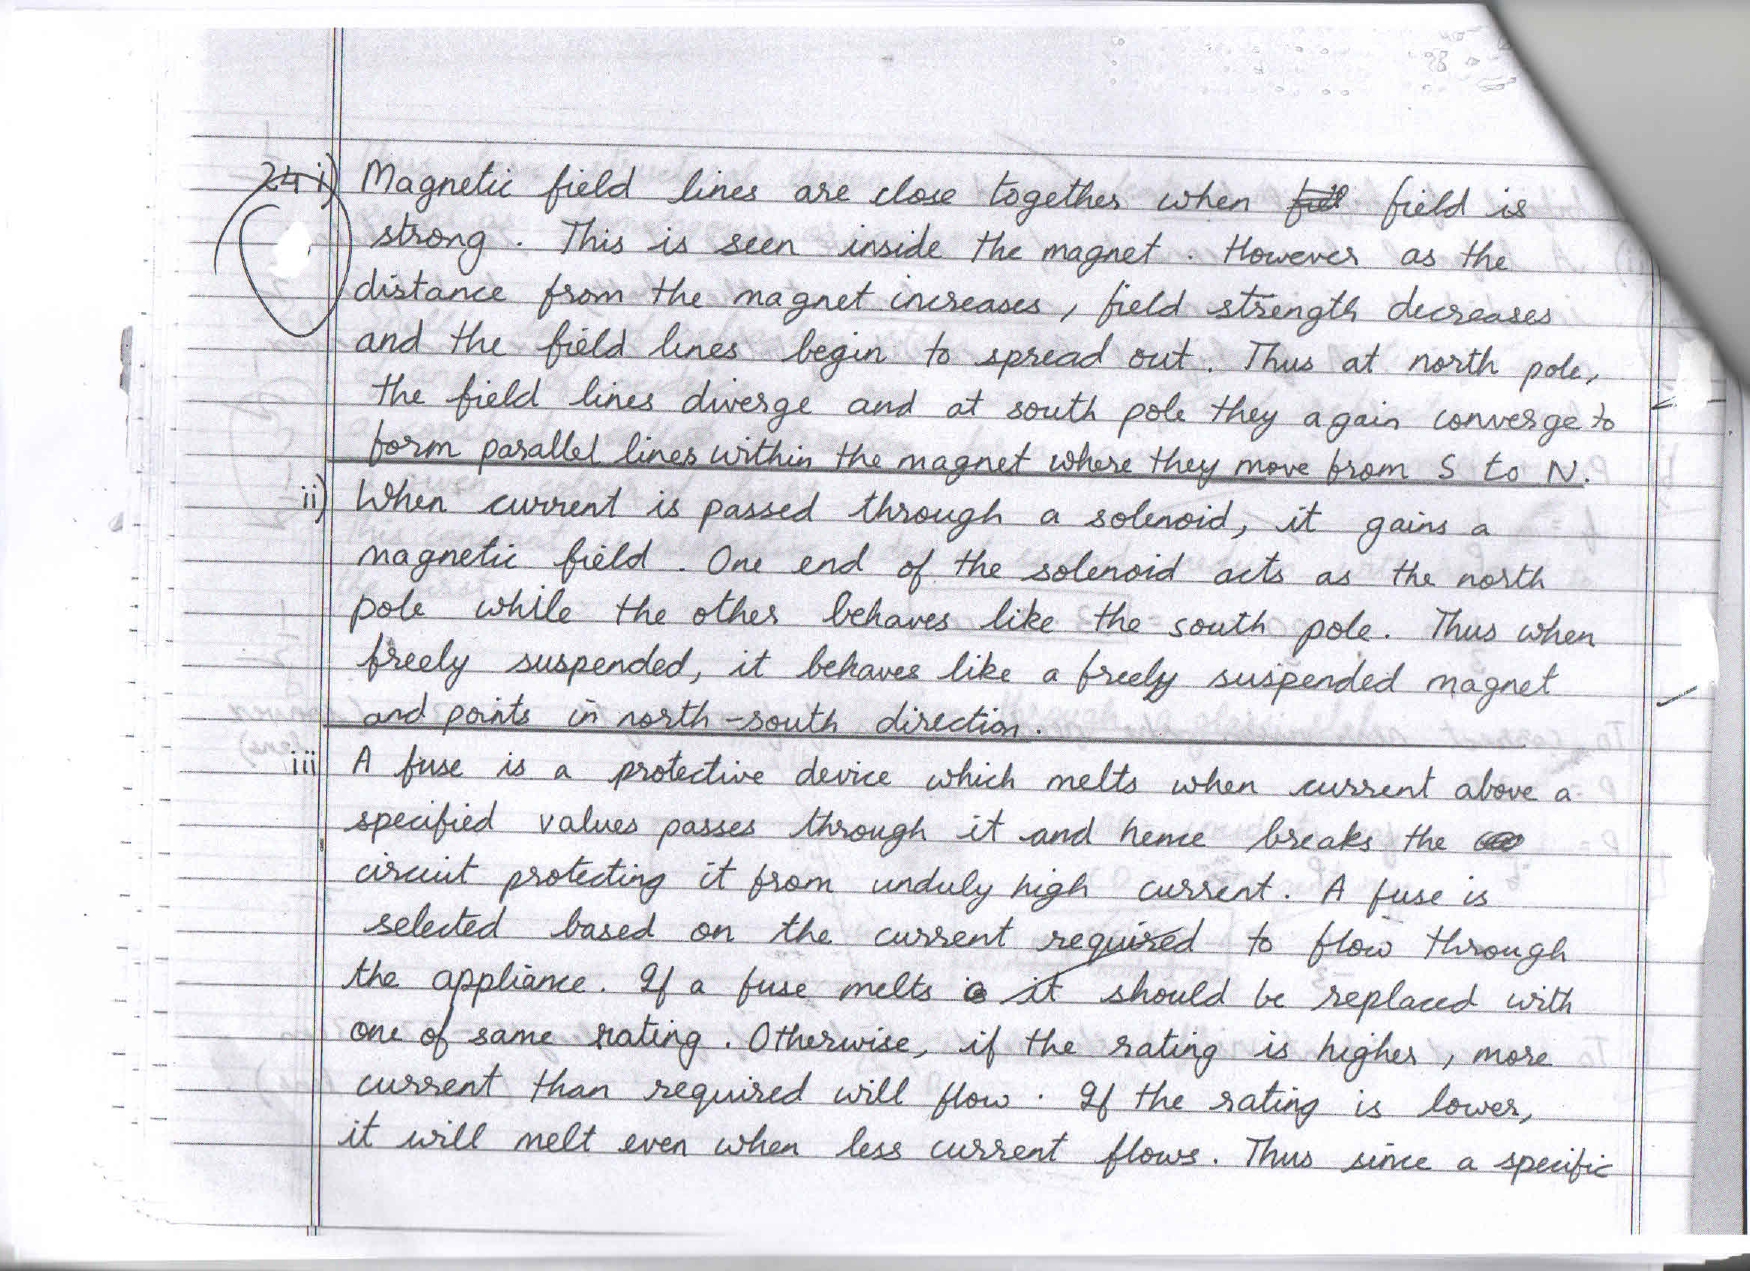 24 i) Magnetic field lines are close together when field is
strong. This is seen inside the magnet. However as the
distance from the magnet increases, field strength decreases
and the field lines begin to spread out. Thus at north pole,
the field lines diverge and at south pole they again converge to
form parallel lines within the magnet where they move from S to N.
ii) When current is passed through a solenoid, it gains a
magnetic field. One end of the solenoid acts as the north
pole while the other behaves like the south pole. Thus when
freely suspended, it behaves like a freely suspended magnet
and points in north-south direction.
iii A fuse is a protective device which melts when current above a
specified values passes through it and hence breaks the
circuit protecting it from unduly high current. A fuse is
selected based on the current required to flow through
the appliance. If a fuse melts it should be replaced with
one of same rating. Otherwise, if the rating is higher, more
current than required will flow. If the rating is lower,
it will melt even when less current flows. Thus since a specific